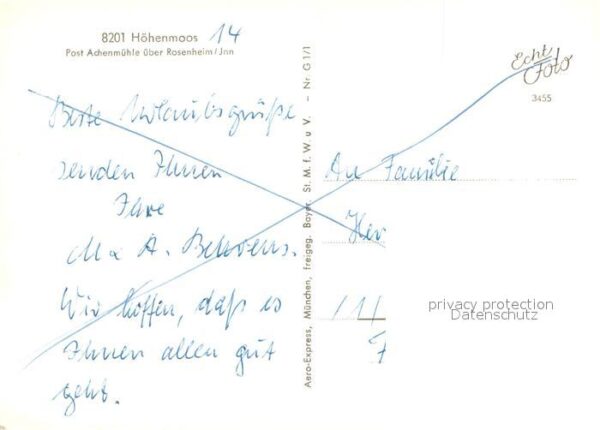 8201 Höhenmoos 14
Post Achenmühle über Rosenheim/Jnn
Beste Urlaubsgrüße
senden Ihnen
Ihre
A. Behrens.
Wir hoffen, daß es
Ihnen allen gut
geht.
Aero-Express, München, freigeg. Bayer. St. M. f. W. u V. – Nr. G 1/1
Echt
Foto
3455
An Familie
privacy protection
Datenschutz